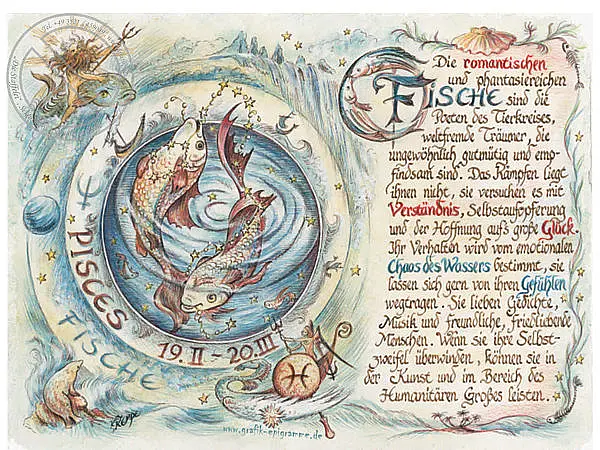 PISCES
FISCHE
19.II - 20.III
www.grafik-epigramme.de
Die romantischen
und phantasiereichen
FISCHE sind die
Poeten des Tierkreises,
weltfremde Träumer, die
ungewöhnlich gutmütig und emp-
findsam sind. Das Kämpfen liegt
ihnen nicht, sie versuchen es mit
Verständnis, Selbstaufopferung
und der Hoffnung aufs große Glück.
Ihr Verhalten wird vom emotionalen
Chaos des Wassers bestimmt, sie
lassen sich gern von ihren Gefühlen
wegtragen. Sie lieben Gedichte,
Musik und freundliche, friedliebende
Menschen. Wenn sie ihre Selbst-
zweifel überwinden, können sie in
der Kunst und im Bereich des
Humanitären Großes leisten.